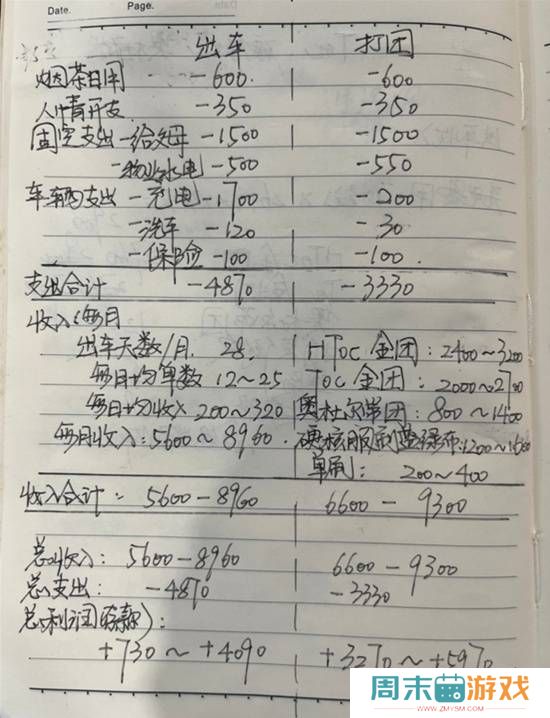 Date. Page.
出车 打团
烟茶日用 -600. -600
人情开支 -350 -350
固定支出-给父母 -1500 -1500
-物业水电 -500 -550
车辆支出-充电 -1700 -200
-洗车 -120 -30
-保险 -100 -100.
支出合计 -4870 -3330
收入(每月
出车天数/月. 28. HToc 金团: 2400~3200
每日均单数 12~25 Toc 金团: 2000~2700
每日均收入 200~320 奥杜尔单团: 800~1400
每月收入: 5600~8960. 硬核服刷
单刷: 200~400
收入合计: 5600-8960 6600-9300
总收入: 5600-8960 6600-9300
总支出: -4870 -3330
总利润(存款):
+730~+4090 +3270~+5970
周末游戏
WWW.ZMYSM.COM